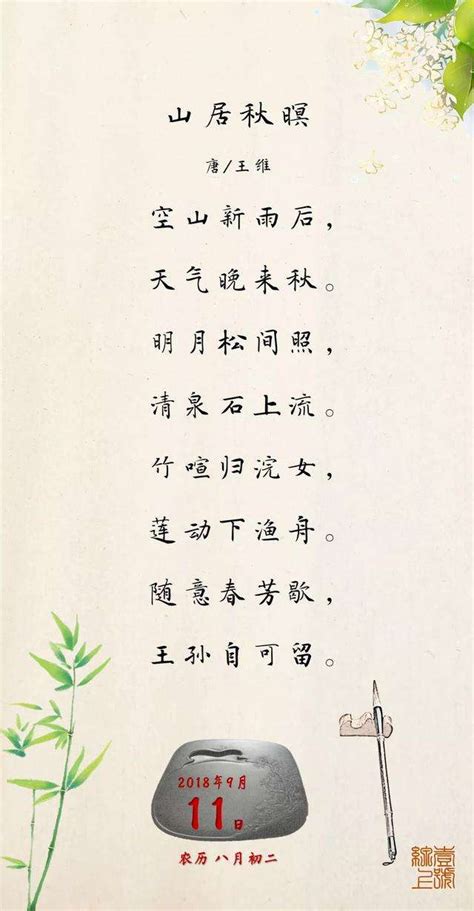 山居秋暝
唐/王维
空山新雨后，
天气晚来秋。
明月松间照，
清泉石上流。
竹喧归浣女，
莲动下渔舟。
随意春芳歇，
王孙自可留。
2018年9月
11日
农历 八月初二